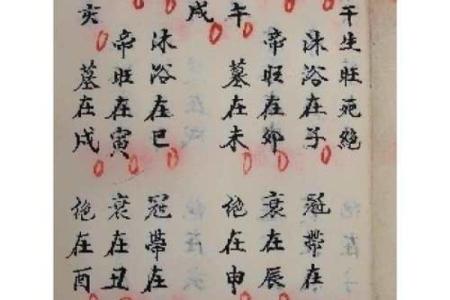 干生旺死絶
沐浴在子 冠帶在
帝旺在卯 衰在辰
午 墓在未 絶在申
戌
沐浴在巳 冠帶在
帝旺在寅 衰在丑
亥 墓在戌 絶在酉